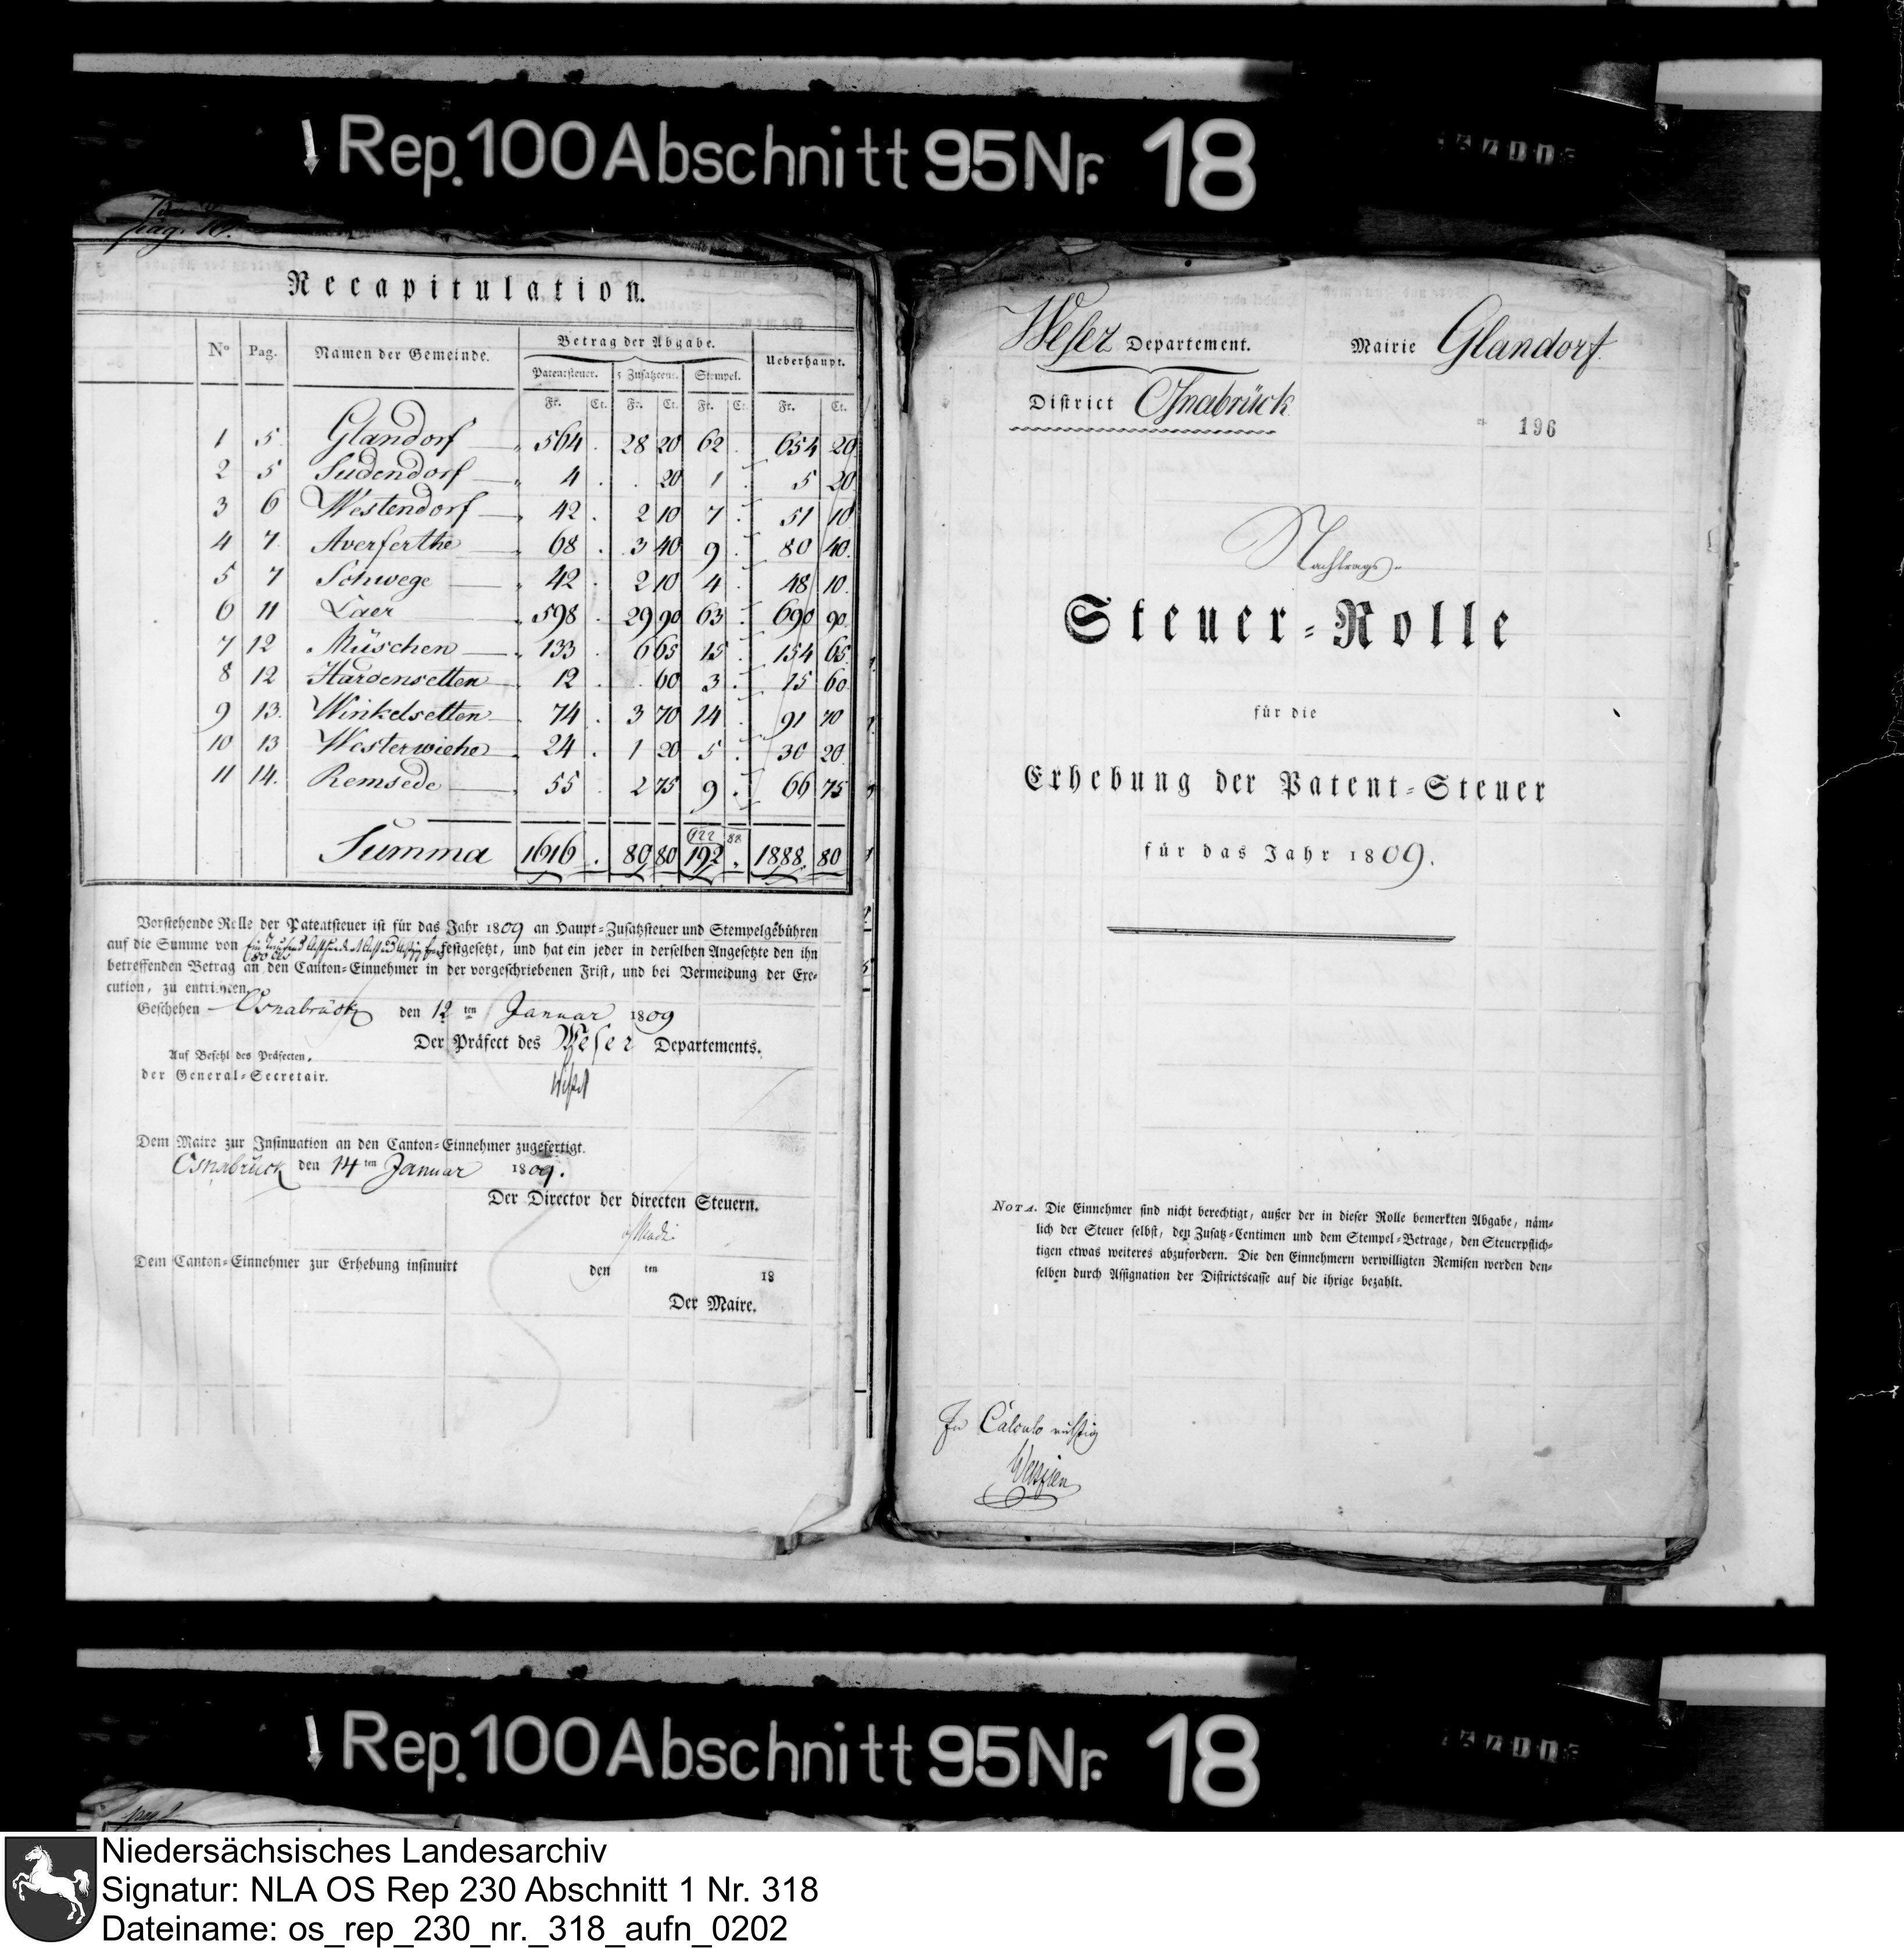 Rep. 100 Abschnitt 95 Nr. 18
pag.
Recapitulation.
No Pag. Namen der Gemeinde. Betrag der Abgabe. Ueberhaupt.
Patentsteuer. 5 Zusatzcent. Stempel.
Fr. Ct. Fr. Ct. Fr. Ct. Fr. Ct.
1 5 Glandorf 564 . 28 20 62 . 654 20
2 5 Sudendorf 4 . . 20 1 . 5 20
3 6 Westendorf 42 . 2 10 7 . 51 10
4 7 Averferthe 68 . 3 40 9 . 80 40
5 7 Schwege 42 . 2 10 4 . 48 10
6 11 Laer 598 . 29 90 63 . 690 90
7 12 Müschen 133 . 6 65 15 . 154 65
8 12 Hardensetten 12 . . 60 3 . 15 60
9 13 Winkelsetten 74 . 3 70 14 . 91 70
10 13 Westerwiehe 24 . 1 20 5 . 30 20
11 14. Remsede 55 . 2 75 9 . 66 75
122 88
Summa 1616 . 80 80 192 . 1888 80
Vorstehende Rolle der Patentsteuer ist für das Jahr 1809 an Haupt-Zusatzsteuer und Stempelgebühren
auf die Summe von festgesetzt, und hat ein jeder in derselben Angesetzte den ihn
betreffenden Betrag an den Canton-Einnehmer in der vorgeschriebenen Frist, und bei Vermeidung der Exe-
cution, zu entrichten.
Geschehen Osnabrück den 12 ten Januar 1809
Der Präfect des Weser Departements.
Auf Befehl des Präfecten,
der General-Secretair.
Dem Maire zur Insinuation an den Canton-Einnehmer zugefertigt.
Osnabrück den 14 ten Januar 1809.
Der Director der directen Steuern.
Dem Canton-Einnehmer zur Erhebung insinuirt den ten 18
Der Maire.
Weser Departement. Mairie Glandorf.
District Osnabrück
196
Nachtrags-
Steuer-Rolle
für die
Erhebung der Patent-Steuer
für das Jahr 1809.
NOTA. Die Einnehmer sind nicht berechtigt, außer der in dieser Rolle bemerkten Abgabe, näm-
lich der Steuer selbst, den Zusatz-Centimen und dem Stempel-Betrage, den Steuerpflich-
tigen etwas weiteres abzufordern. Die den Einnehmern verwilligten Remisen werden den-
selben durch Assignation der Districtscasse auf die ihrige bezahlt.
In Calculo richtig
Rep. 100 Abschnitt 95 Nr. 18
pag 2
Niedersächsisches Landesarchiv
Signatur: NLA OS Rep 230 Abschnitt 1 Nr. 318
Dateiname: os_rep_230_nr._318_aufn_0202